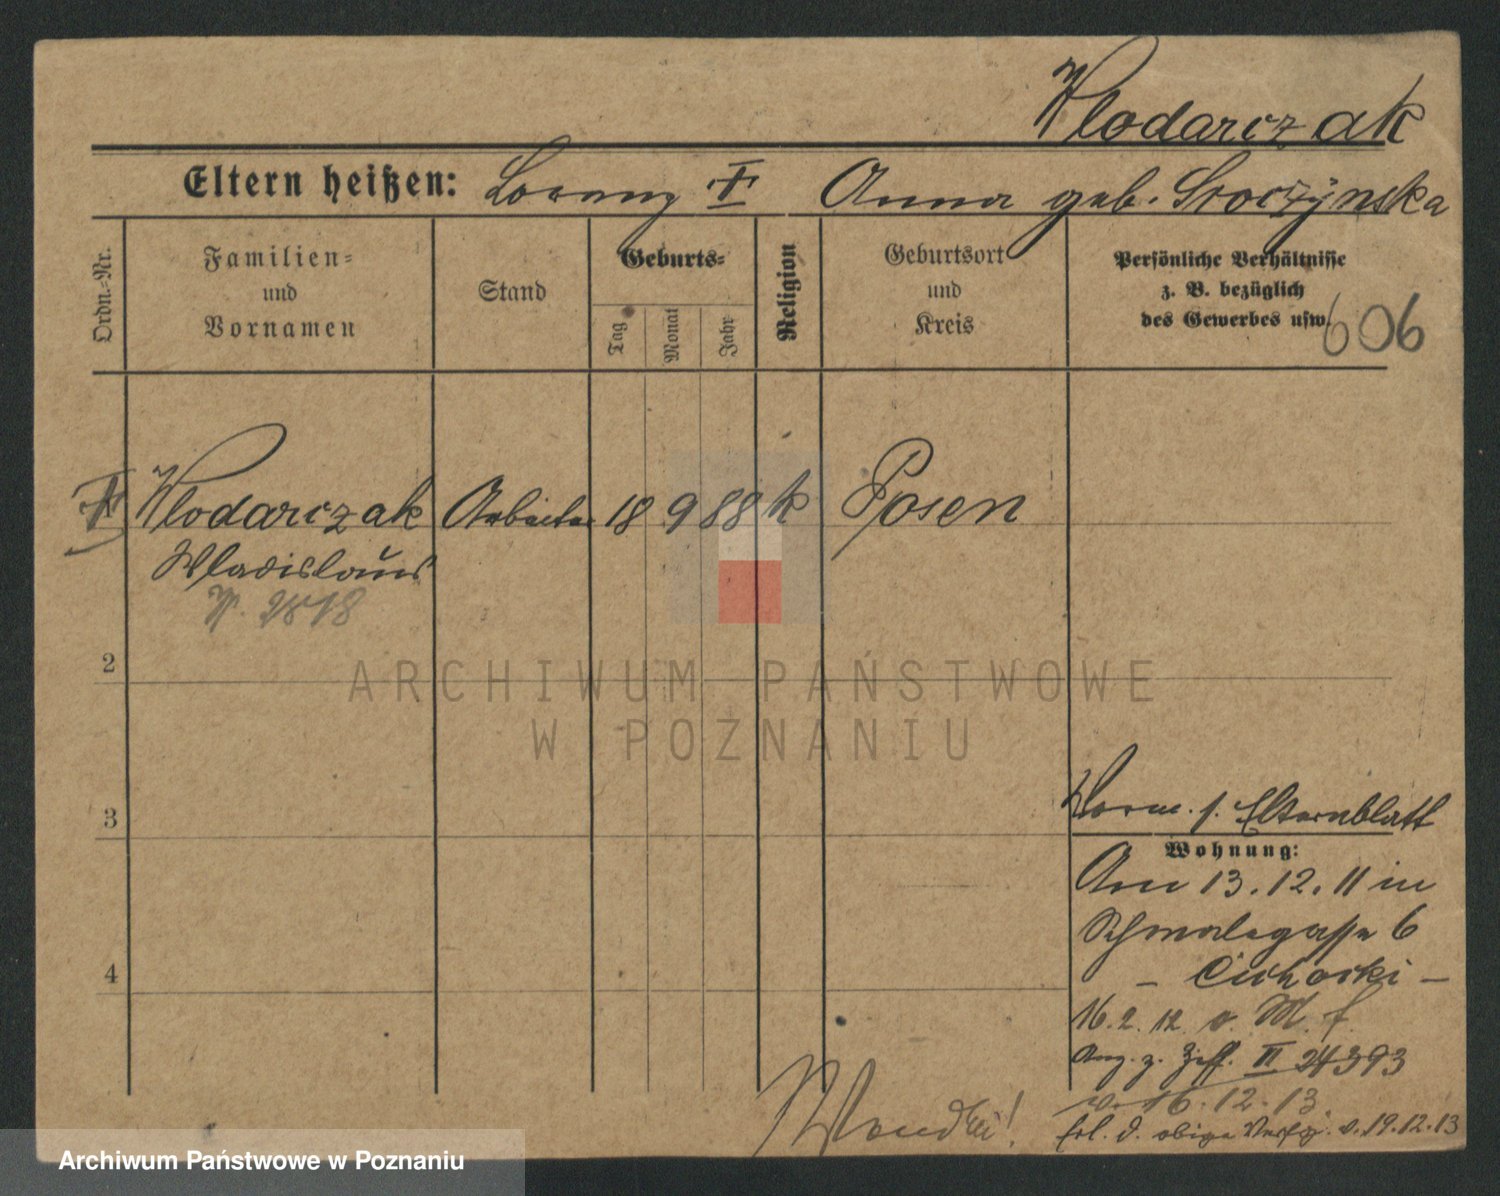 Wlodarczak
Eltern heißen: Lorenz † Anna geb. Sroczýnska
Ordn.-Nr.
Familien-
und
Vornamen
Stand
Geburts-
Tag
Monat
Jahr
Religion
Geburtsort
und
Kreis
Persönliche Verhältnisse
z. B. bezüglich
des Gewerbes usw.
606
Wlodarczak Arbeiter 18 9 88 k Posen
Wladislaus
2
3
4
s. Elternblatt
Wohnung:
Am 13.12.11 in
Schmalegasse 6
– Cichocki –
16.2.12 v. M. f.
Ang. z. Ziff. II 24393
v. 16.12.13
Erl. d. obige Verfg. v. 19.12.13
ARCHIWUM PAŃSTWOWE
W POZNANIU
Archiwum Państwowe w Poznaniu